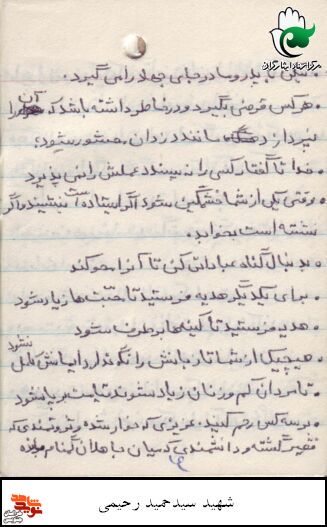 مرکز اسناد ایثارگران
نیکی با پدر و مادر جای جهاد را می گیرد.
• هر کس قرضی بگیرد و در خاطر داشته باشد که آن را
نپردازد مانند دزدان محشور میشود؛
• خدا تا گفتار کسی را نپسندد عملش را نمی پذیرد
• وقتی یکی از شما خشمگین شود اگر ایستاده است بنشیند و اگر
نشسته است بخوابد.
• بدنبال گناه عبادتی کن تا آنرا محو کند
• برای یکدیگر هدیه بفرستید تا محبت ها زیاد شود
• هدیه بفرستید تا کینه ها برطرف شود
• هیچیک از شما تا زبانش را نگه ندارد ایمانش کامل نشود
• تا مردان کم و زنان زیاد نشوند قیامت بر پا نشود
• بر سه کس رحم کنید: عزیزی که خوار شده و ثروتمندی که
فقیر گشته و دانشمندی که میان جاهلان گمنام مانده
شهید سیدحمید رحیمی